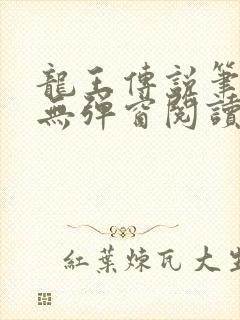 龍王傳說筆
無彈窗閱讀
紅葉煉瓦大